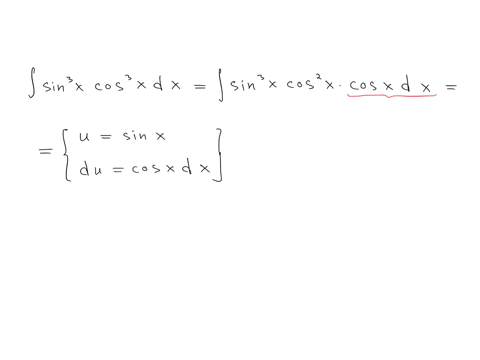 ∫ sin³x cos³x dx = ∫ sin³x cos²x · cosx dx =
= { u = sin x
du = cosx dx }